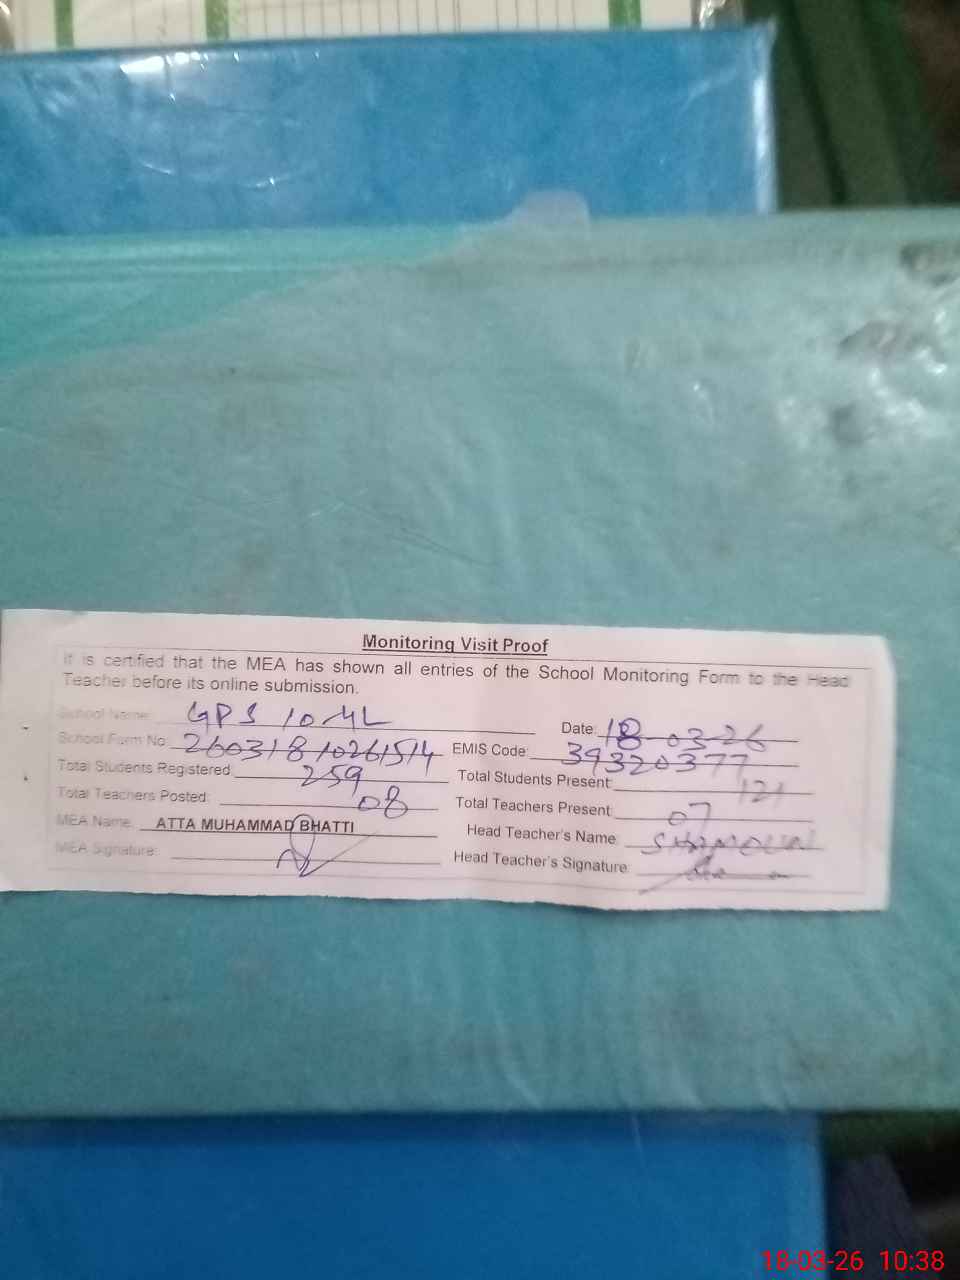 Monitoring Visit Proof
It is certified that the MEA has shown all entries of the School Monitoring Form to the Head
Teacher before its online submission.
School Name: GPS 10 ML Date: 18-03-26
School Form No: 26031810261514 EMIS Code: 39320377
Total Students Registered: 259 Total Students Present: 121
Total Teachers Posted: 08 Total Teachers Present: 07
MEA Name: ATTA MUHAMMAD BHATTI Head Teacher's Name:
MEA Signature: Head Teacher's Signature:
18-03-26 10:38